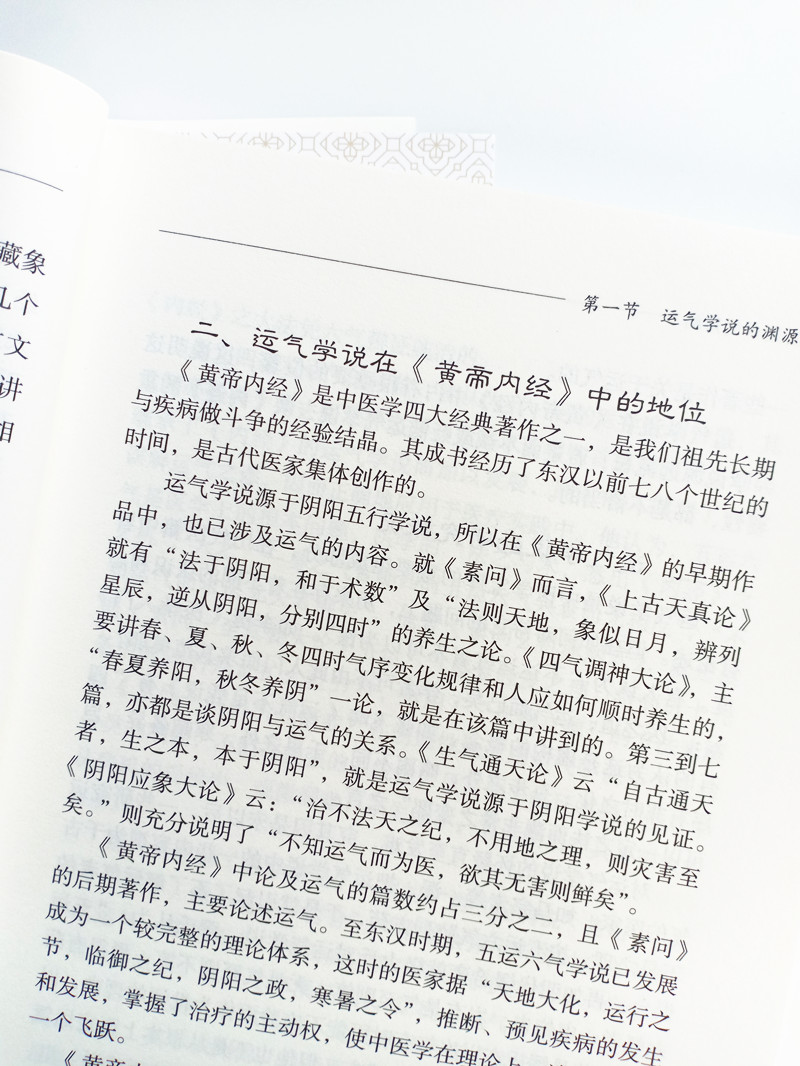 藏象
几个
文
讲
相
第一节 运气学说的渊源
二、运气学说在《黄帝内经》中的地位
《黄帝内经》是中医学四大经典著作之一，是我们祖先长期
与疾病做斗争的经验结晶。其成书经历了东汉以前七八个世纪的
时间，是古代医家集体创作的。
运气学说源于阴阳五行学说，所以在《黄帝内经》的早期作
品中，也已涉及运气的内容。就《素问》而言，《上古天真论》
就有“法于阴阳，和于术数”及“法则天地，象似日月，辨列
星辰，逆从阴阳，分别四时”的养生之论。《四气调神大论》，主
要讲春、夏、秋、冬四时气序变化规律和人应如何顺时养生的，
“春夏养阳，秋冬养阴”一论，就是在该篇中讲到的。第三到七
篇，亦都是谈阴阳与运气的关系。《生气通天论》云“自古通天
者，生之本，本于阴阳”，就是运气学说源于阴阳学说的见证。
《阴阳应象大论》云：“治不法天之纪，不用地之理，则灾害至
矣。”则充分说明了“不知运气而为医，欲其无害则鲜矣”。
《黄帝内经》中论及运气的篇数约占三分之二，且《素问》
的后期著作，主要论述运气。至东汉时期，五运六气学说已发展
成为一个较完整的理论体系，这时的医家据“天地大化，运行之
节，临御之纪，阴阳之政，寒暑之令”，推断、预见疾病的发生
和发展，掌握了治疗的主动权，使中医学在理论上
一个飞跃。
《黄帝